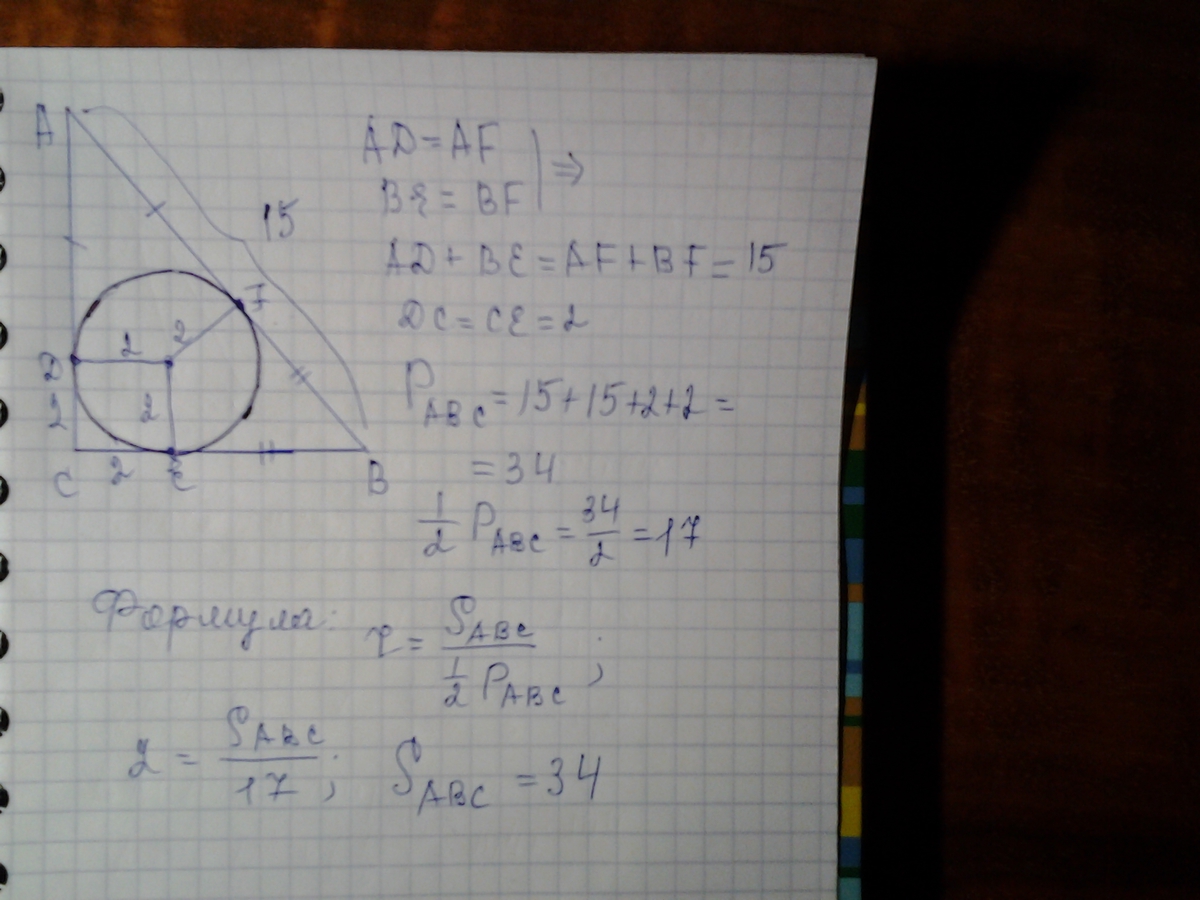 A
15
F
2
2
D
2
2
C
2
E
B
AD = AF
BE = BF | ⇒
AD + BE = AF + BF = 15
DC = CE = 2
P_ABC = 15+15+2+2 =
= 34
1/2 P_ABC = 34/2 = 17
Формула: r = S_ABC / (1/2 P_ABC) ;
2 = S_ABC / 17 ; S_ABC = 34